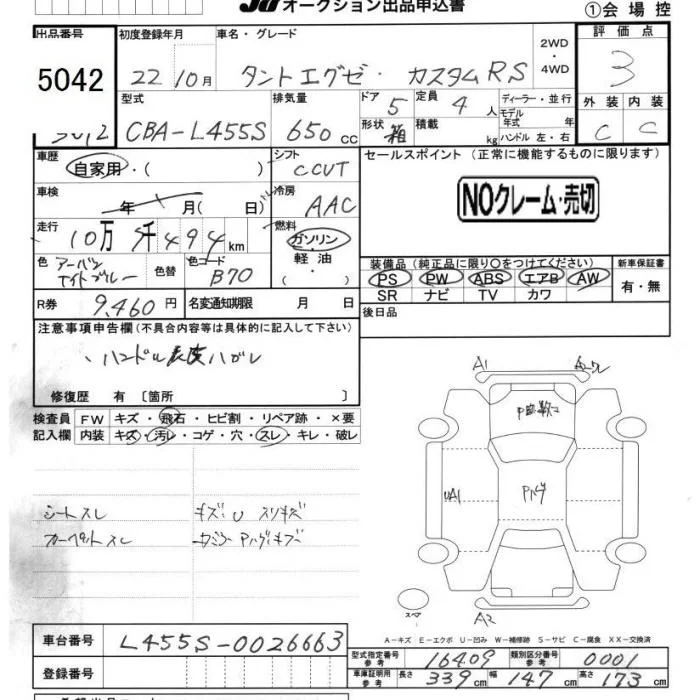 オークション出品申込書
①会場控
出品番号
5042
初度登録年月
22 10月
車名・グレード
タントエグゼ・カスタムRS
2WD
・
4WD
評価点
3
型式
CBA-L455S
排気量
650 cc
ドア
5
定員
4 人
形状
箱
積載
kg
ディーラー・並行
モデル
年式 年
ハンドル 左・右
外装 内装
C C
車歴
自家用・( )
シフト
CCVT
セールスポイント (正常に機能するものに限ります)
NOクレーム・売切
車検
年 月( 日)
冷房
AAC
走行
10万 5千494 km
燃料
ガソリン
軽油
・( )
色
アーバン
ナイトブルー
色替
色コード
B70
装備品(純正品に限り〇をつけてください)
PS PW ABS エアB AW
SR ナビ TV カワ
新車保証書
有・無
R券
9,460 円
名変通知期限 月 日
後日品
注意事項申告欄(不具合内容等は具体的に記入して下さい)
ハンドル表皮ハガレ
修復歴 有〔箇所 〕
検査員
記入欄
FW キズ・飛石・ヒビ割・リペア跡・×要
内装 キズ・汚レ・コゲ・穴・スレ・キレ・破レ
シートスレ
カーペットスレ
キズ・U スリキズ
A1
UA1
Pハゲ
A2
スペア
A-キズ E-エクボ U-凹み W-補修跡 S-サビ C-腐食 XX-交換済
車台番号
L455S-0026663
登録番号
型式指定番号
参考
16409
類別区分番号
参考
0001
車庫証明用
参考
長さ 339 cm 幅 147 cm 高さ 173 cm